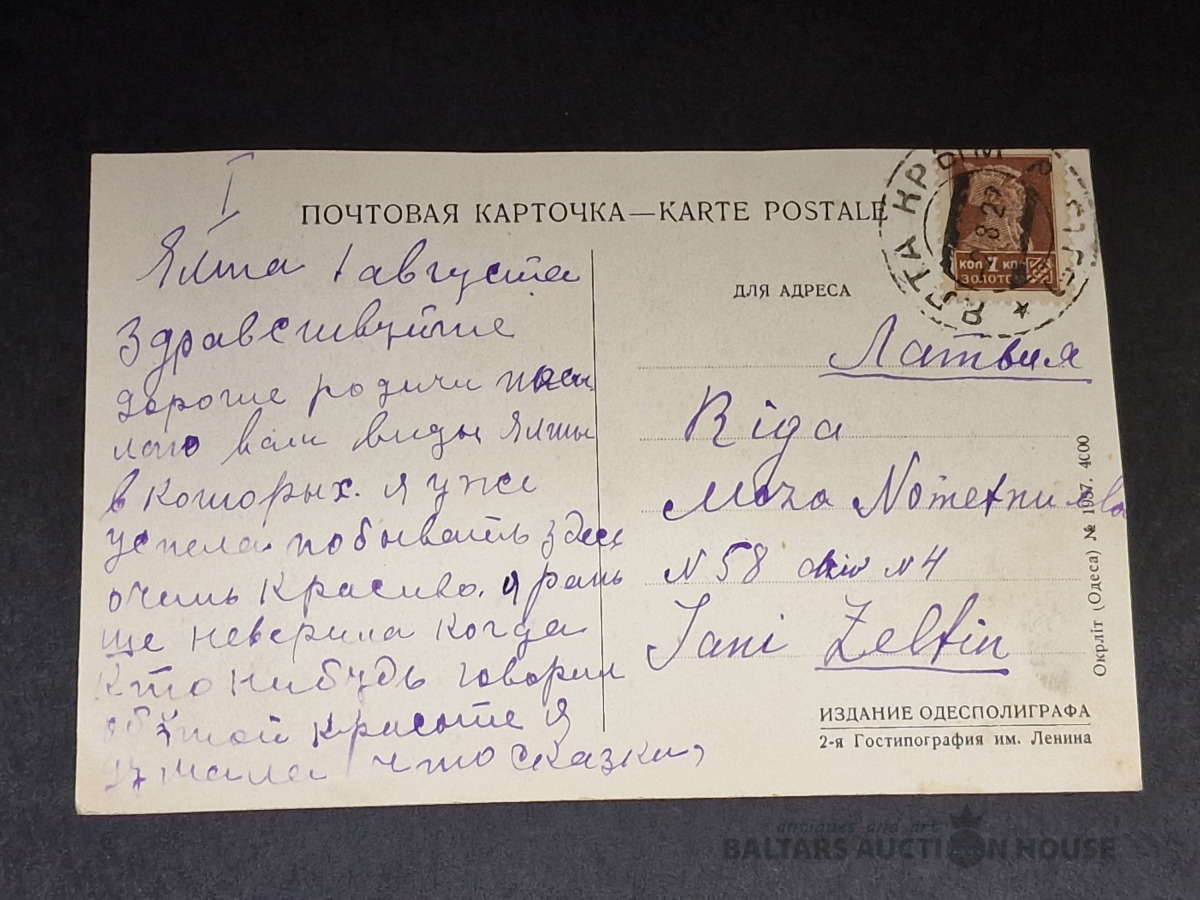 I
ПОЧТОВАЯ КАРТОЧКА — KARTE POSTALE
Ялта 1 августа
Здравствуйте
дорогие родичи посы
лаю вам виды Ялты
в которых. я уже
успела побывать здесь
очень красиво. я рань
ще неверила когда
кто нибудь говорил
об этой красоте я
думала что сказки,
ЯЛТА КРЫМ
8 29
КОП 7 КОП
ЗОЛОТОМ
ДЛЯ АДРЕСА
Латвия
Riga
Moza Nometnu
N 58 dziv N 4
Jani Zeltin
Окрліт (Одеса) № 1987. 4000
ИЗДАНИЕ ОДЕСПОЛИГРАФА
2-я Гостипография им. Ленина
antiques and art
BALTARS AUCTION HOUSE